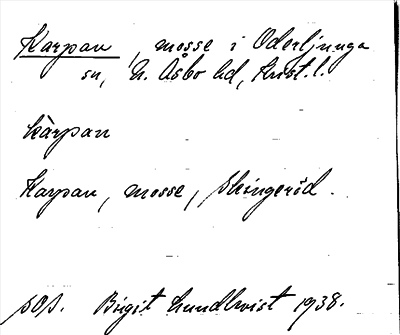 Karpan, mosse i Oderljunga
sn, N. Åsbo hd, Krist. l.
kàrpan
Karpan, mosse, Skingeröd.
sOp. Birgit Lundkvist 1938.